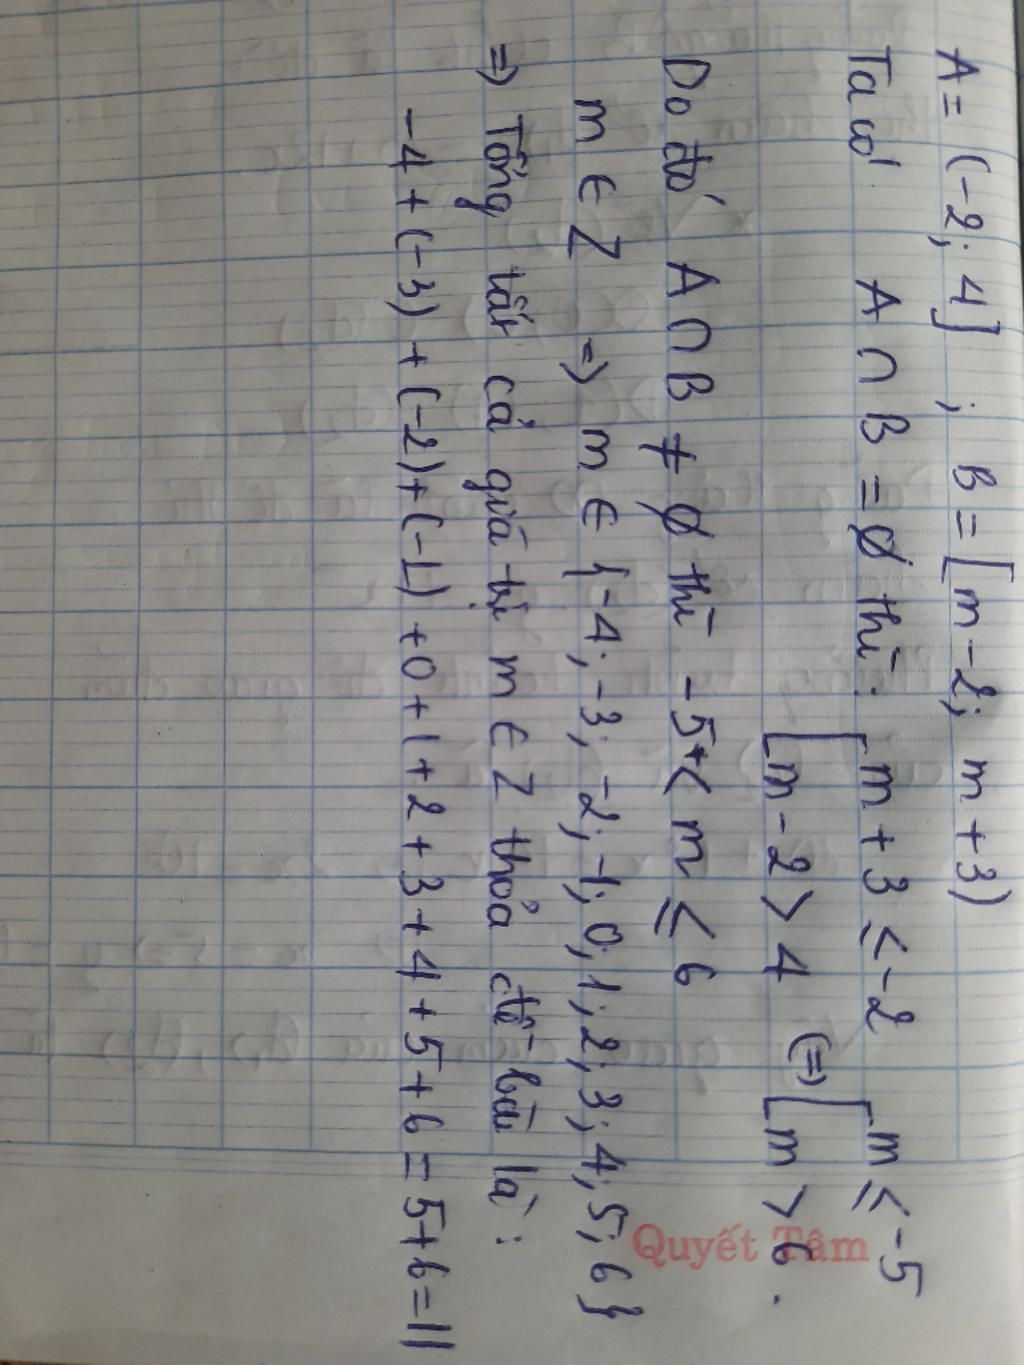 A = (-2; 4] ; B = [m-2; m+3)
Ta có A ∩ B = ∅ thì: [m+3 ≤ -2
[m-2 > 4 (=) [m ≤ -5
[m > 6.
Do đó A ∩ B ≠ ∅ thì -5 < m ≤ 6
m ∈ Z => m ∈ {-4; -3; -2; -1; 0; 1; 2; 3; 4; 5; 6}
=> Tổng tất cả giá trị m ∈ Z thỏa đề bài là:
-4 + (-3) + (-2) + (-1) + 0 + 1 + 2 + 3 + 4 + 5 + 6 = 5 + 6 = 11
Quyết Tâm